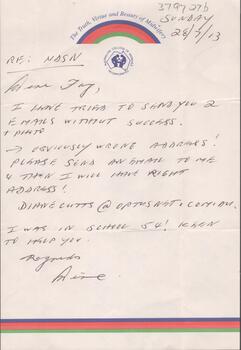 The Truth, Virtue and Beauty of Midwifery
379927b
SUNDAY
28/7/13
RE: NDSN
Dear Fay,
I HAVE TRIED TO SEND YOU 2
EMAILS WITHOUT SUCCESS.
+ PHOTO
→ OBVIOUSLY WRONG ADDRESS!
PLEASE SEND AN EMAIL TO ME
& THEN I WILL HAVE RIGHT
ADDRESS!
DIANECUTTS@OPTUSNET.COM.AU.
I WAS IN SCHOOL 54! KEEN
TO HELP YOU.
Regards